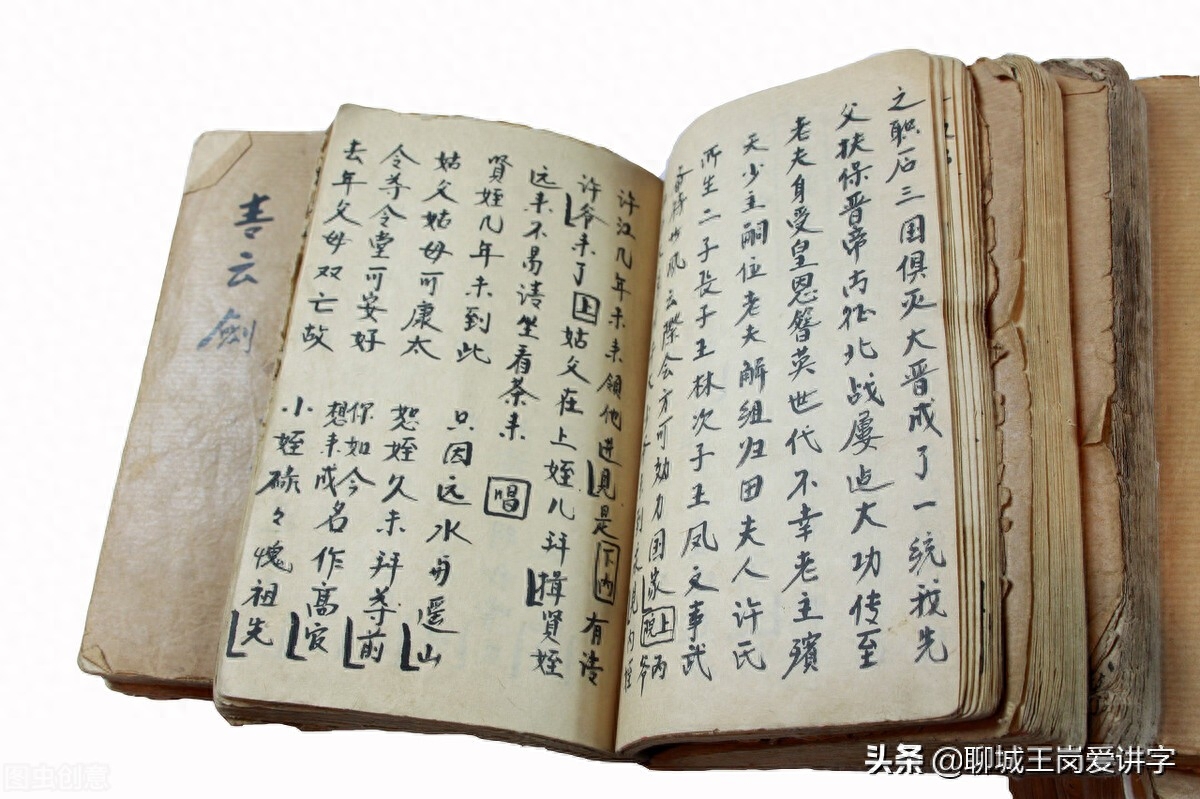 之职后三国俱灭大晋成了一统我先
父扶保晋帝南征北战屡大功传至
老夫身受皇恩簪英世代不幸老主殡
天少主嗣位老夫解组归田夫人许氏
所生二子长子王林次子王凤文事武
风云際会方可効力国家
许江几年未来領他进見是下内有请
许爷来了上姑父在上姪儿拜揖贤姪
远来不易请坐看茶来
贤姪几年未到此 唱
只因远水与遥山
姑父姑母可康太 恕姪久未拜尊前
令尊令堂可安好 你如今想来成名作高官
去年父母双亡故 小姪碌々愧祖先
云劍
头条 @聊城王岗爱讲字
图虫创意